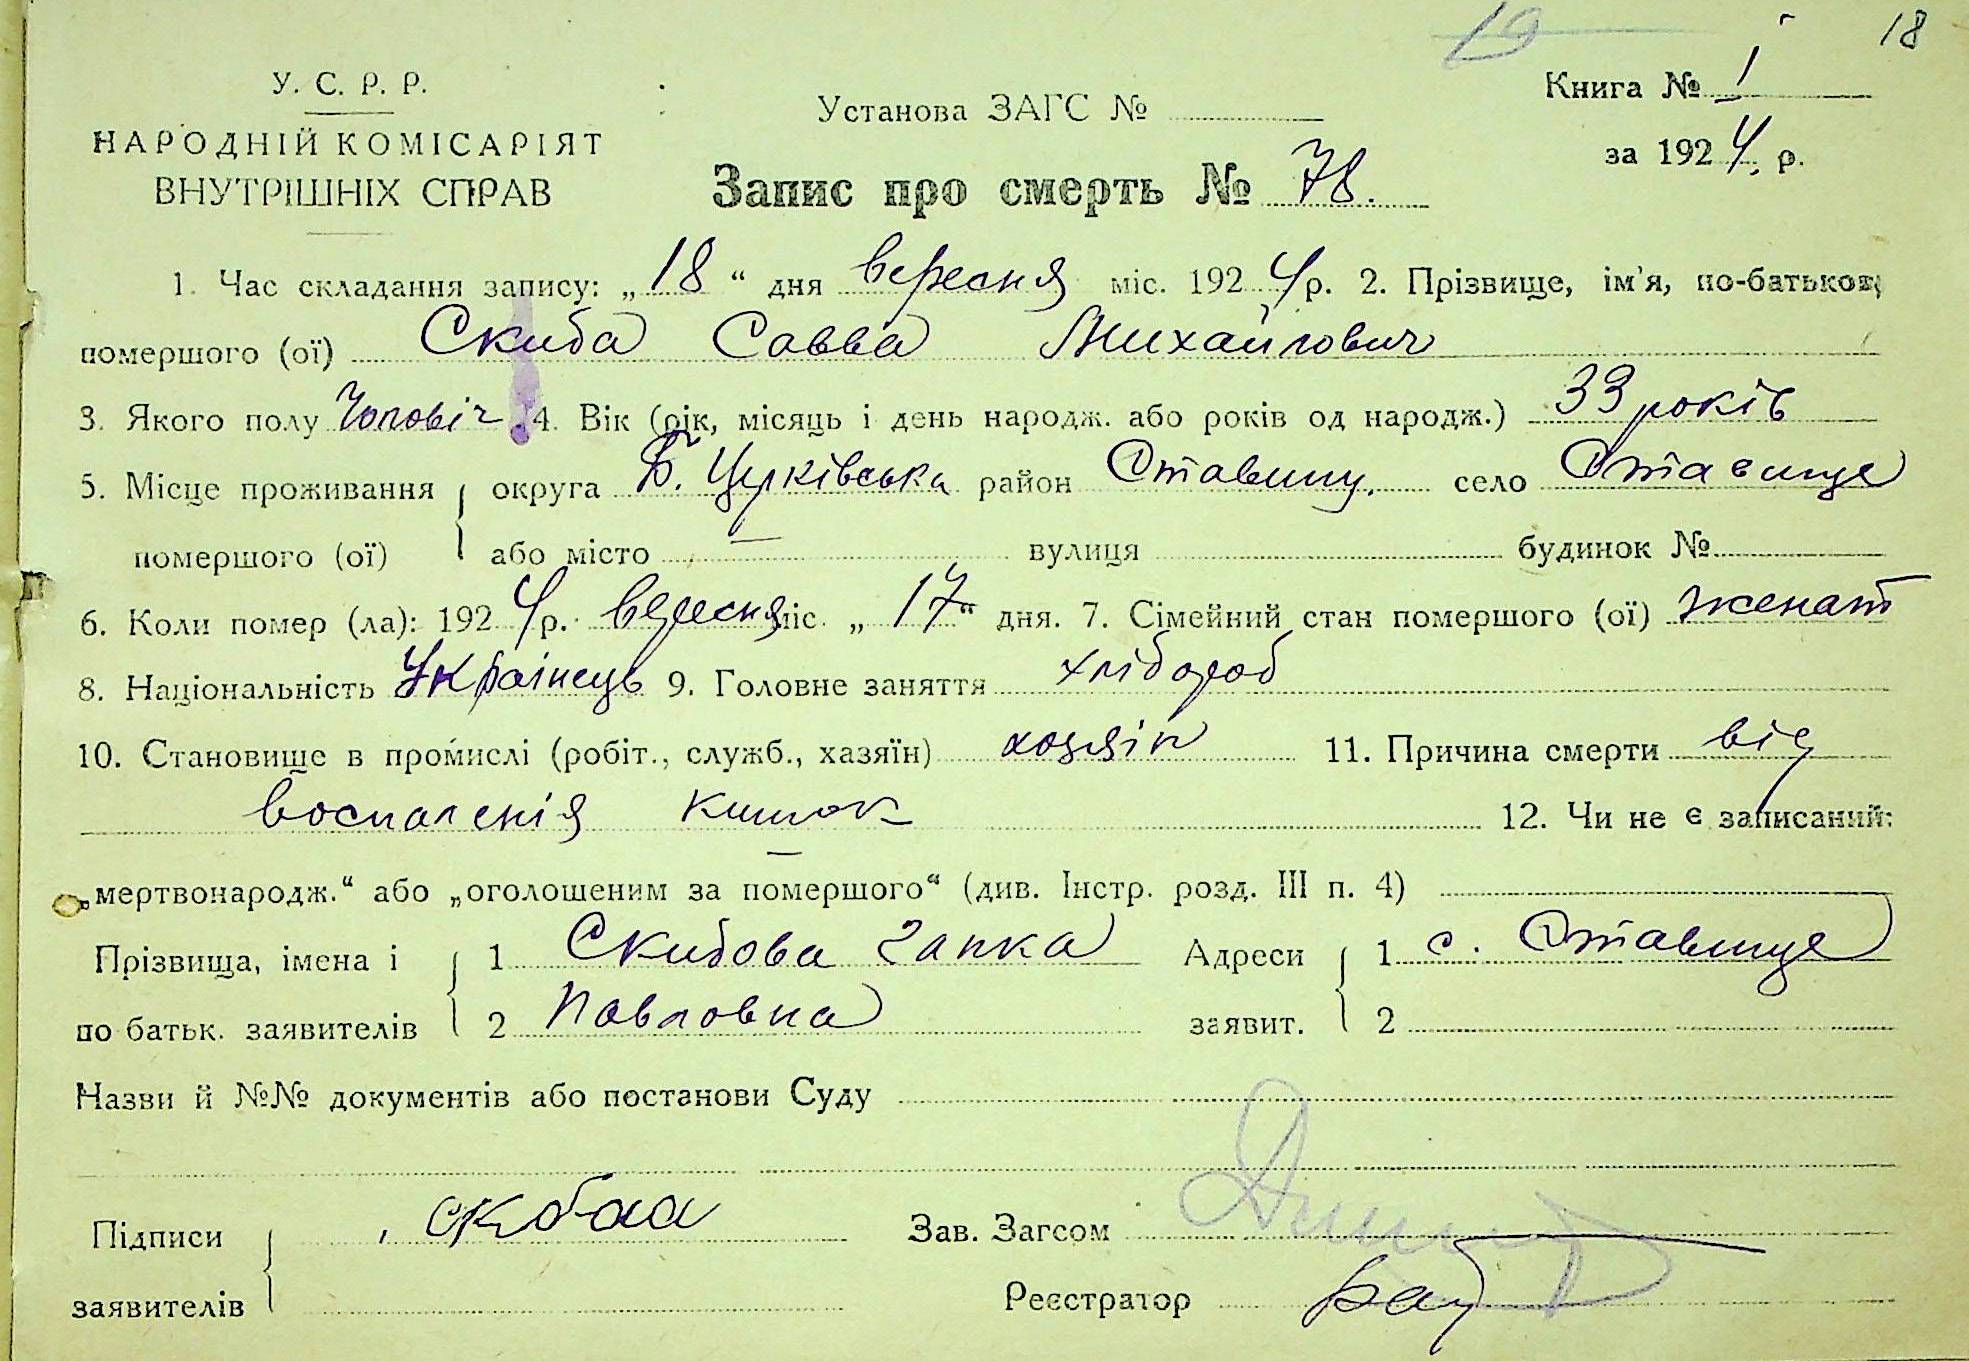 19
18
У. С. Р. Р.
НАРОДНІЙ КОМІСАРІЯТ
ВНУТРІШНІХ СПРАВ
Установа ЗАГС №
Книга № 1
за 1924 р.
Запис про смерть № 78.
1. Час складання запису: „18“ дня вересня міс. 1924 р. 2. Прізвище, ім'я, по-батькові
помершого (ої) Скиба Савва Михайлович
3. Якого полу Чоловіч. 4. Вік (рік, місяць і день народж. або років од народж.) 33 років
5. Місце проживання округа Б. Церківська район Ставищ. село Ставище
помершого (ої) або місто — вулиця будинок №
6. Коли помер (ла): 1924 р. вересня міс. „17“ дня. 7. Сімейний стан помершого (ої) женат
8. Національність Українець 9. Головне заняття хлібороб
10. Становище в промислі (робіт., служб., хазяїн) хозяїн 11. Причина смерти від
воспаленія кишок 12. Чи не є записаний:
„мертвонародж.“ або „оголошеним за померщого“ (див. Інстр. розд. III п. 4) —
Прізвища, імена і 1 Скибова Гапка Адреси 1 с. Ставище
по батьк. заявителів 2 Павловна заявит. 2
Назви й №№ документів або постанови Суду
Підписи скбаа Зав. Загсом
заявителів Реєстратор